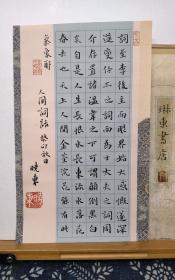 詞至李後主而眼界始大感慨遂深
遂變伶工之詞而為士大夫之詞周
介存置諸溫韋之下可謂顛倒黑白
矣自是人生長恨水長東流水落花
春去也天上人間金荃浣花能有此
氣象耶
人間詞話 癸卯秋日
曉東
琳東書店